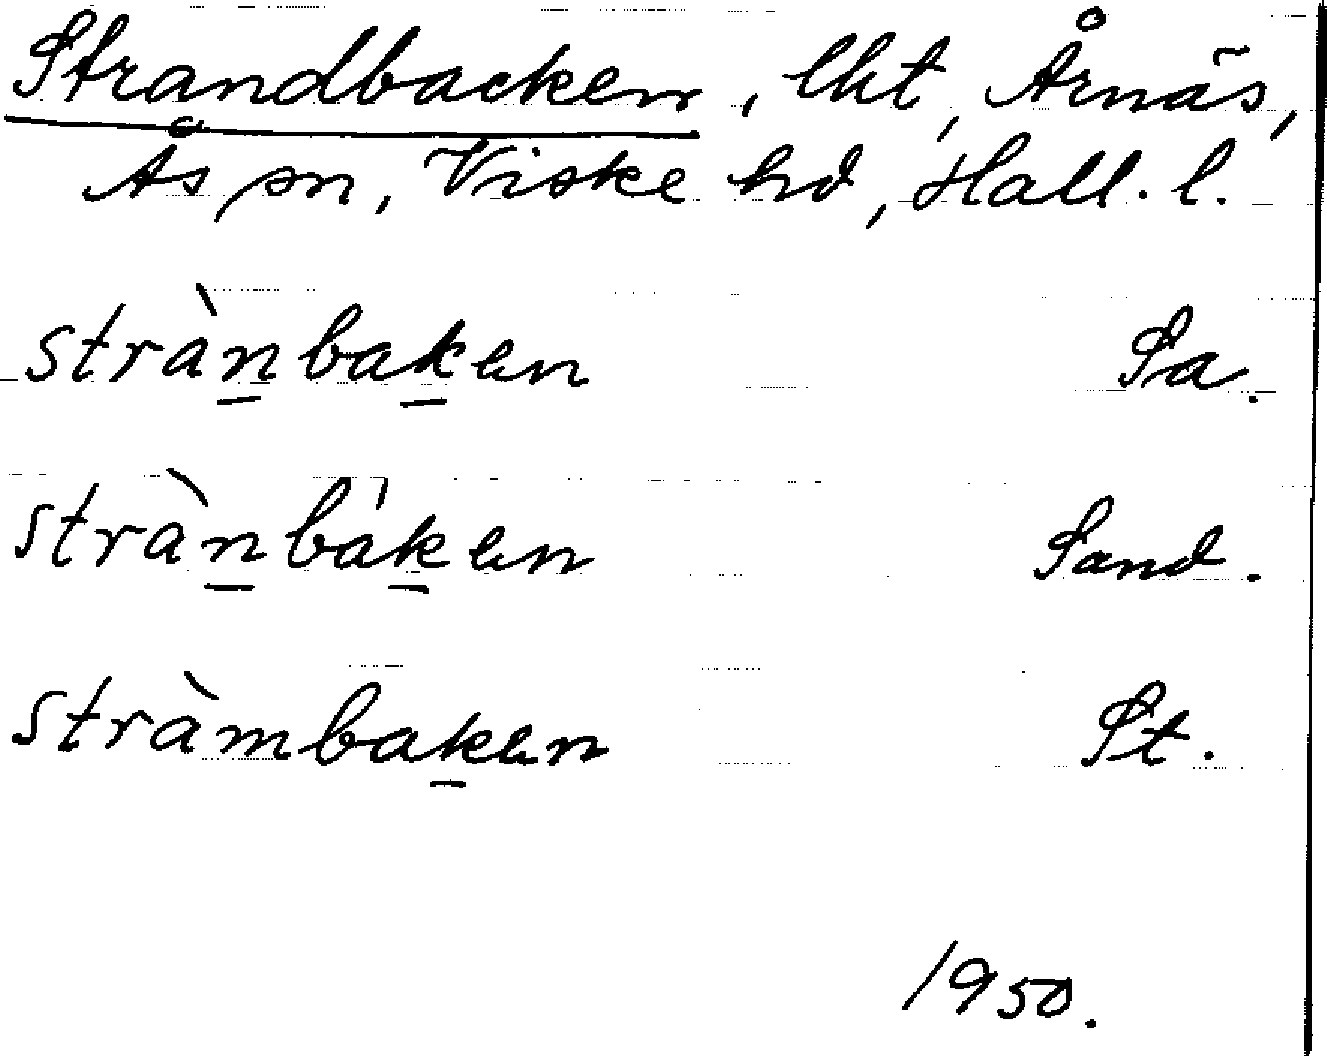 Strandbacken, lht, Årnäs,
Ås sn, Viske hd, Hall. l.
stràn̲bak̲en Sa.
stràn̲bák̲en Sand.
stràmbak̲en St.
1950.